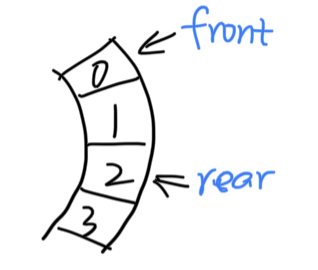 front
0
1
2
rear
3